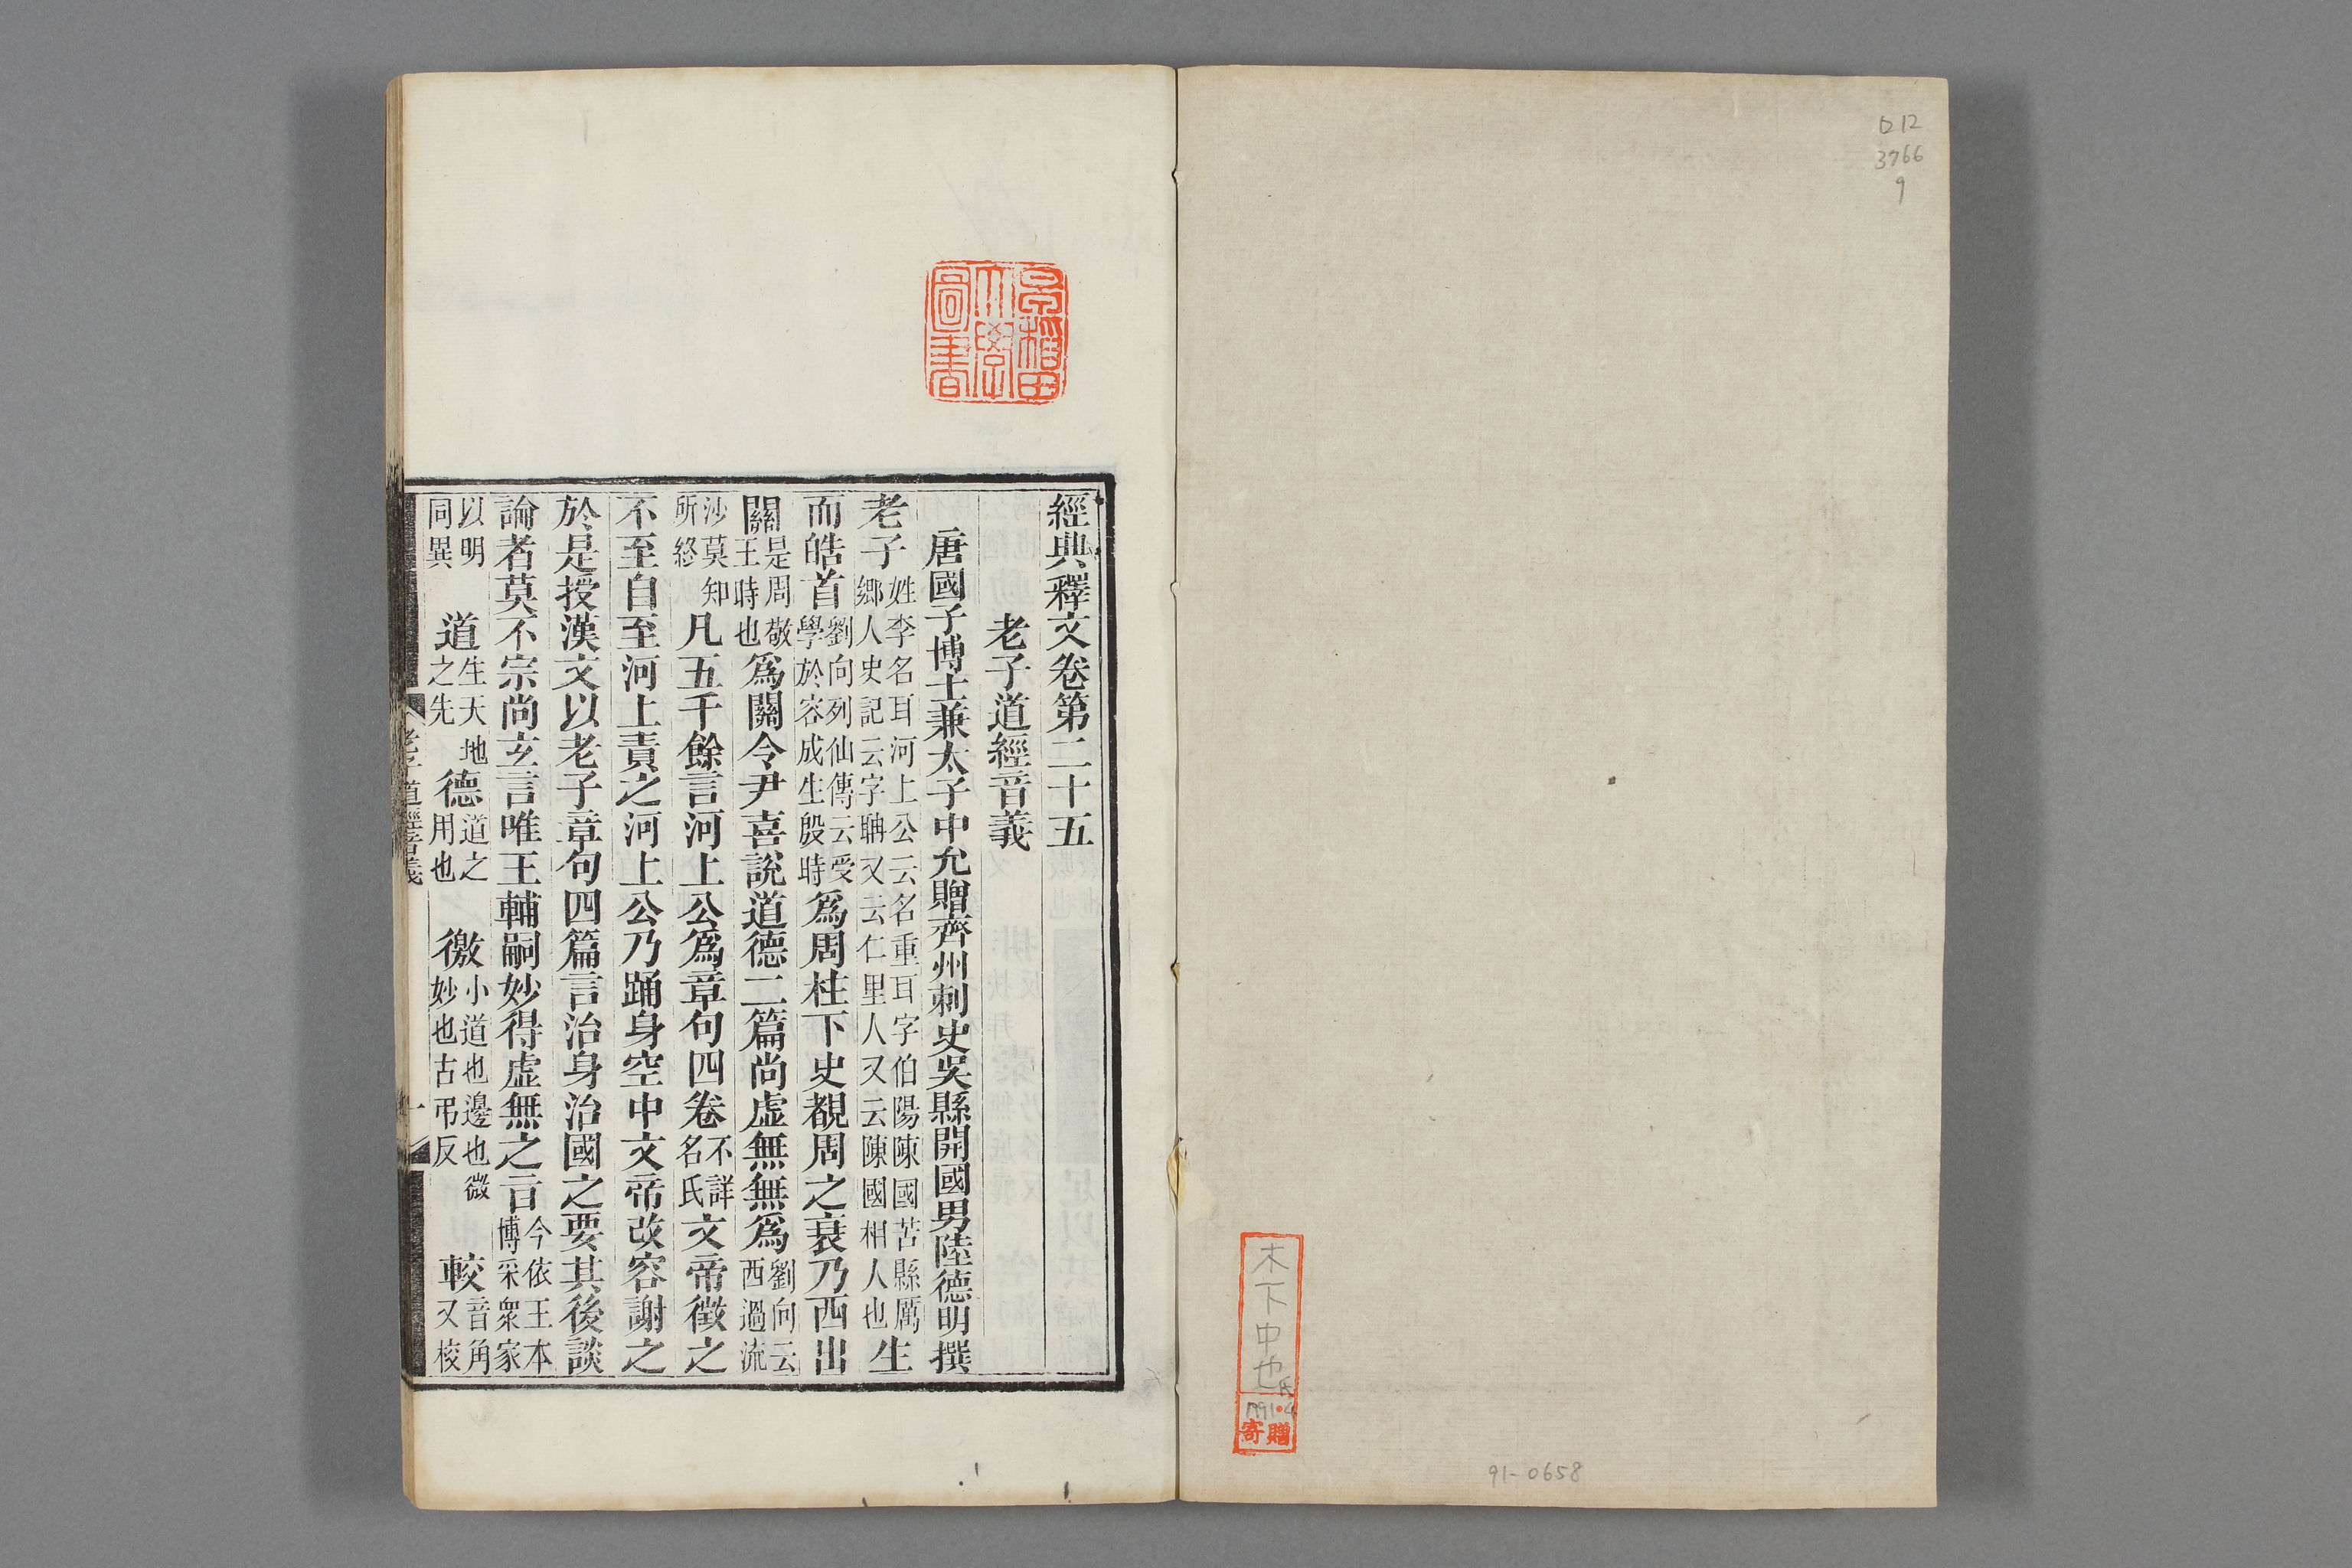 ロ12
3766
9
木下中也氏
1991.4
寄贈
91-0658
早稲田大學圖書
經典釋文卷第二十五
老子道經音義
唐國子博士兼太子中允贈齊州刺史吳縣開國男陸德明撰
老子姓李名耳河上公云名重耳字伯陽陳國苦縣厲鄉人史記云字聃又云仁里人又云陳國相人也生
而皓首劉向列仙傳云受學於容成生殷時爲周柱下史覩周之衰乃西出
關是周敬王時也爲關令尹喜說道德二篇尚虛無無爲劉向云西過流
沙莫知所終凡五千餘言河上公爲章句四卷不詳名氏文帝徵之
不至自至河上責之河上公乃踊身空中文帝改容謝之
於是授漢文以老子章句四篇言治身治國之要其後談
論者莫不宗尚玄言唯王輔嗣妙得虛無之旨今依王本博采衆家
以明同異道生天地之先德道之用也徼小道也邊也微妙也古弔反較音角又校
老子道經音義
一